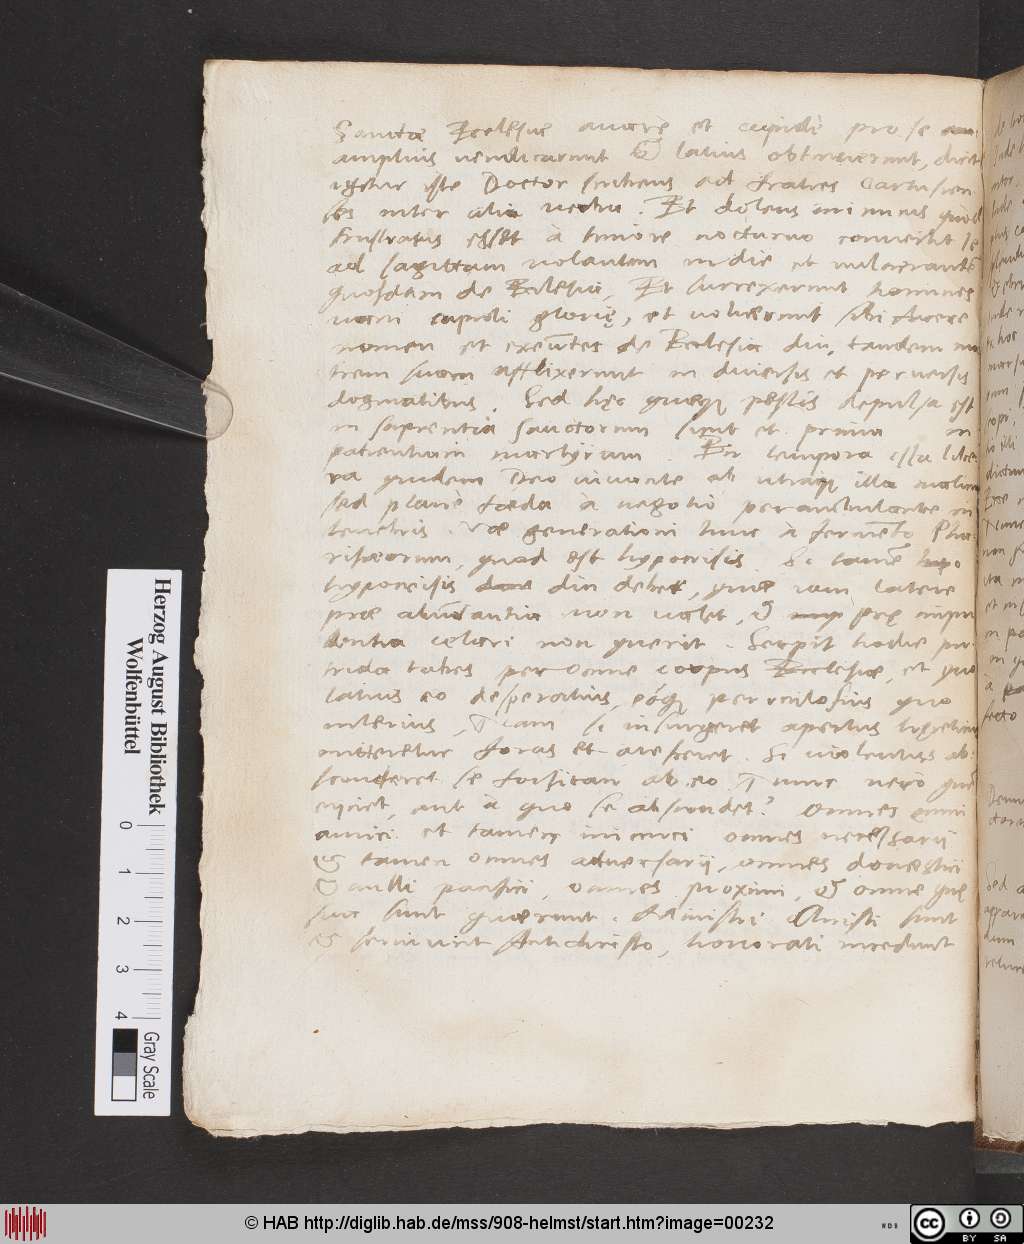 Sanctæ Ecclesiæ auarę et cupidè pro se
amplius vendicarunt & latius obtinuerunt, dicit
igitur iste Doctor scribens ad fratres Cartusien
ses inter alia verba. Et dolens inimicus quod
frustratus esset à timore nocturno conuertit se
ad sagittam volantem in die et vulnerauit
quosdam de Ecclesia, Et surrexerunt homines
vani cupidi glorię, et voluerunt sibi facere
nomen et exeuntes de Ecclesia diu, tandem ma
trem suam afflixerunt in diuersis et peruersis
dogmatibus. Sed hęc quoque pestis depulsa est
in sapientia sanctorum sicut et prima in
patientiam martyrum. En tempora ista libe
ra quidem Deo iuuante ab utraque illa malicia
sed planè fœda à negotio perambulante in
tenebris. Væ generationi huic à fermento Pha
risæorum, quod est hypocrisis. Si tamen
hypocrisis dici debet, quæ iam latere
præ abundantia non valet, & pre impu
dentia celari non querit. Serpit hodie pu
trida tabes per omne corpus Ecclesiæ, et quo
latius eo desperatius, eoque periculosius quo
interius, Nam si insurgeret apertus hęreticus
mitteretur foras et aresceret. Si violentus ab
sconderet se forsitan ab eo nunc verò quem
eijciet, aut à quo se abscondet? Omnes
amici et tamen inimici omnes necessarij
& tamen omnes aduersarij, omnes domestici
& nulli pacifici, omnes proximi, & omne quę
sua sunt quærunt. Ministri Christi sunt
& seruiunt Antichristo, honorati incedunt
Herzog August Bibliothek
Wolfenbüttel
0 1 2 3 4
Gray Scale
© HAB http://diglib.hab.de/mss/908-helmst/start.htm?image=00232
WDB
cc BY SA